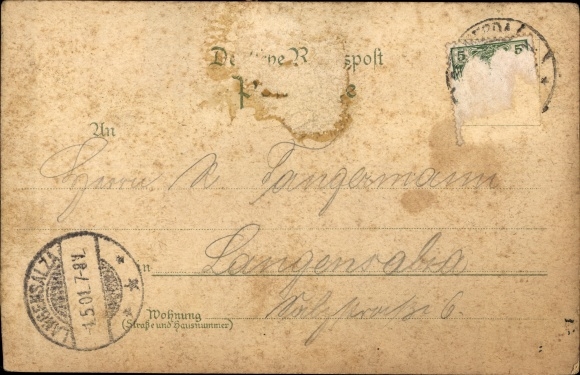 5 5
De che R spost
P e
An
Herrn A. Tangermann
in
Langensalza
6.
Wohnung
(Straße und Hausnummer)
LANGENSALZA
1.5.01. 7-8V.